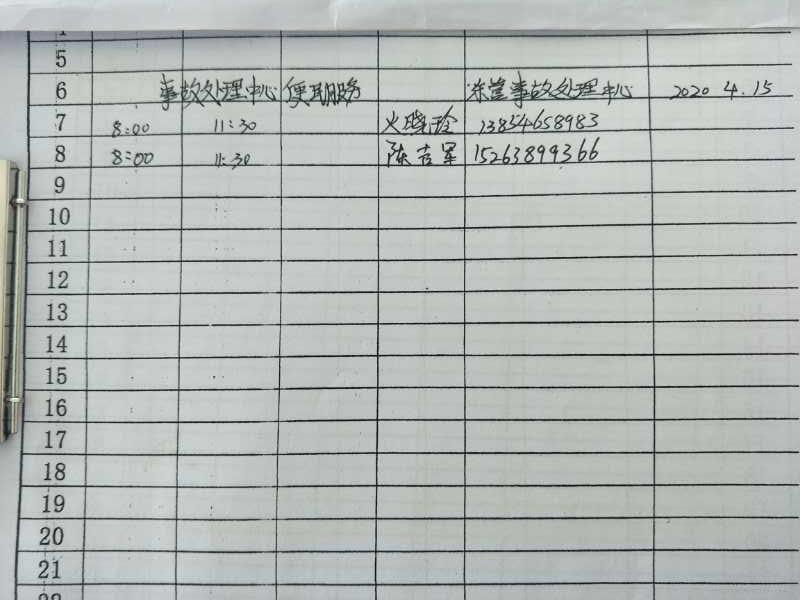 5
6 事故处理中心便民服务 东营事故处理中心 2020 4.15
7 8:00 11:30 火晓玲 13854658983
8 8:00 11:30 陈吉军 15263899366
9
10
11
12
13
14
15
16
17
18
19
20
21